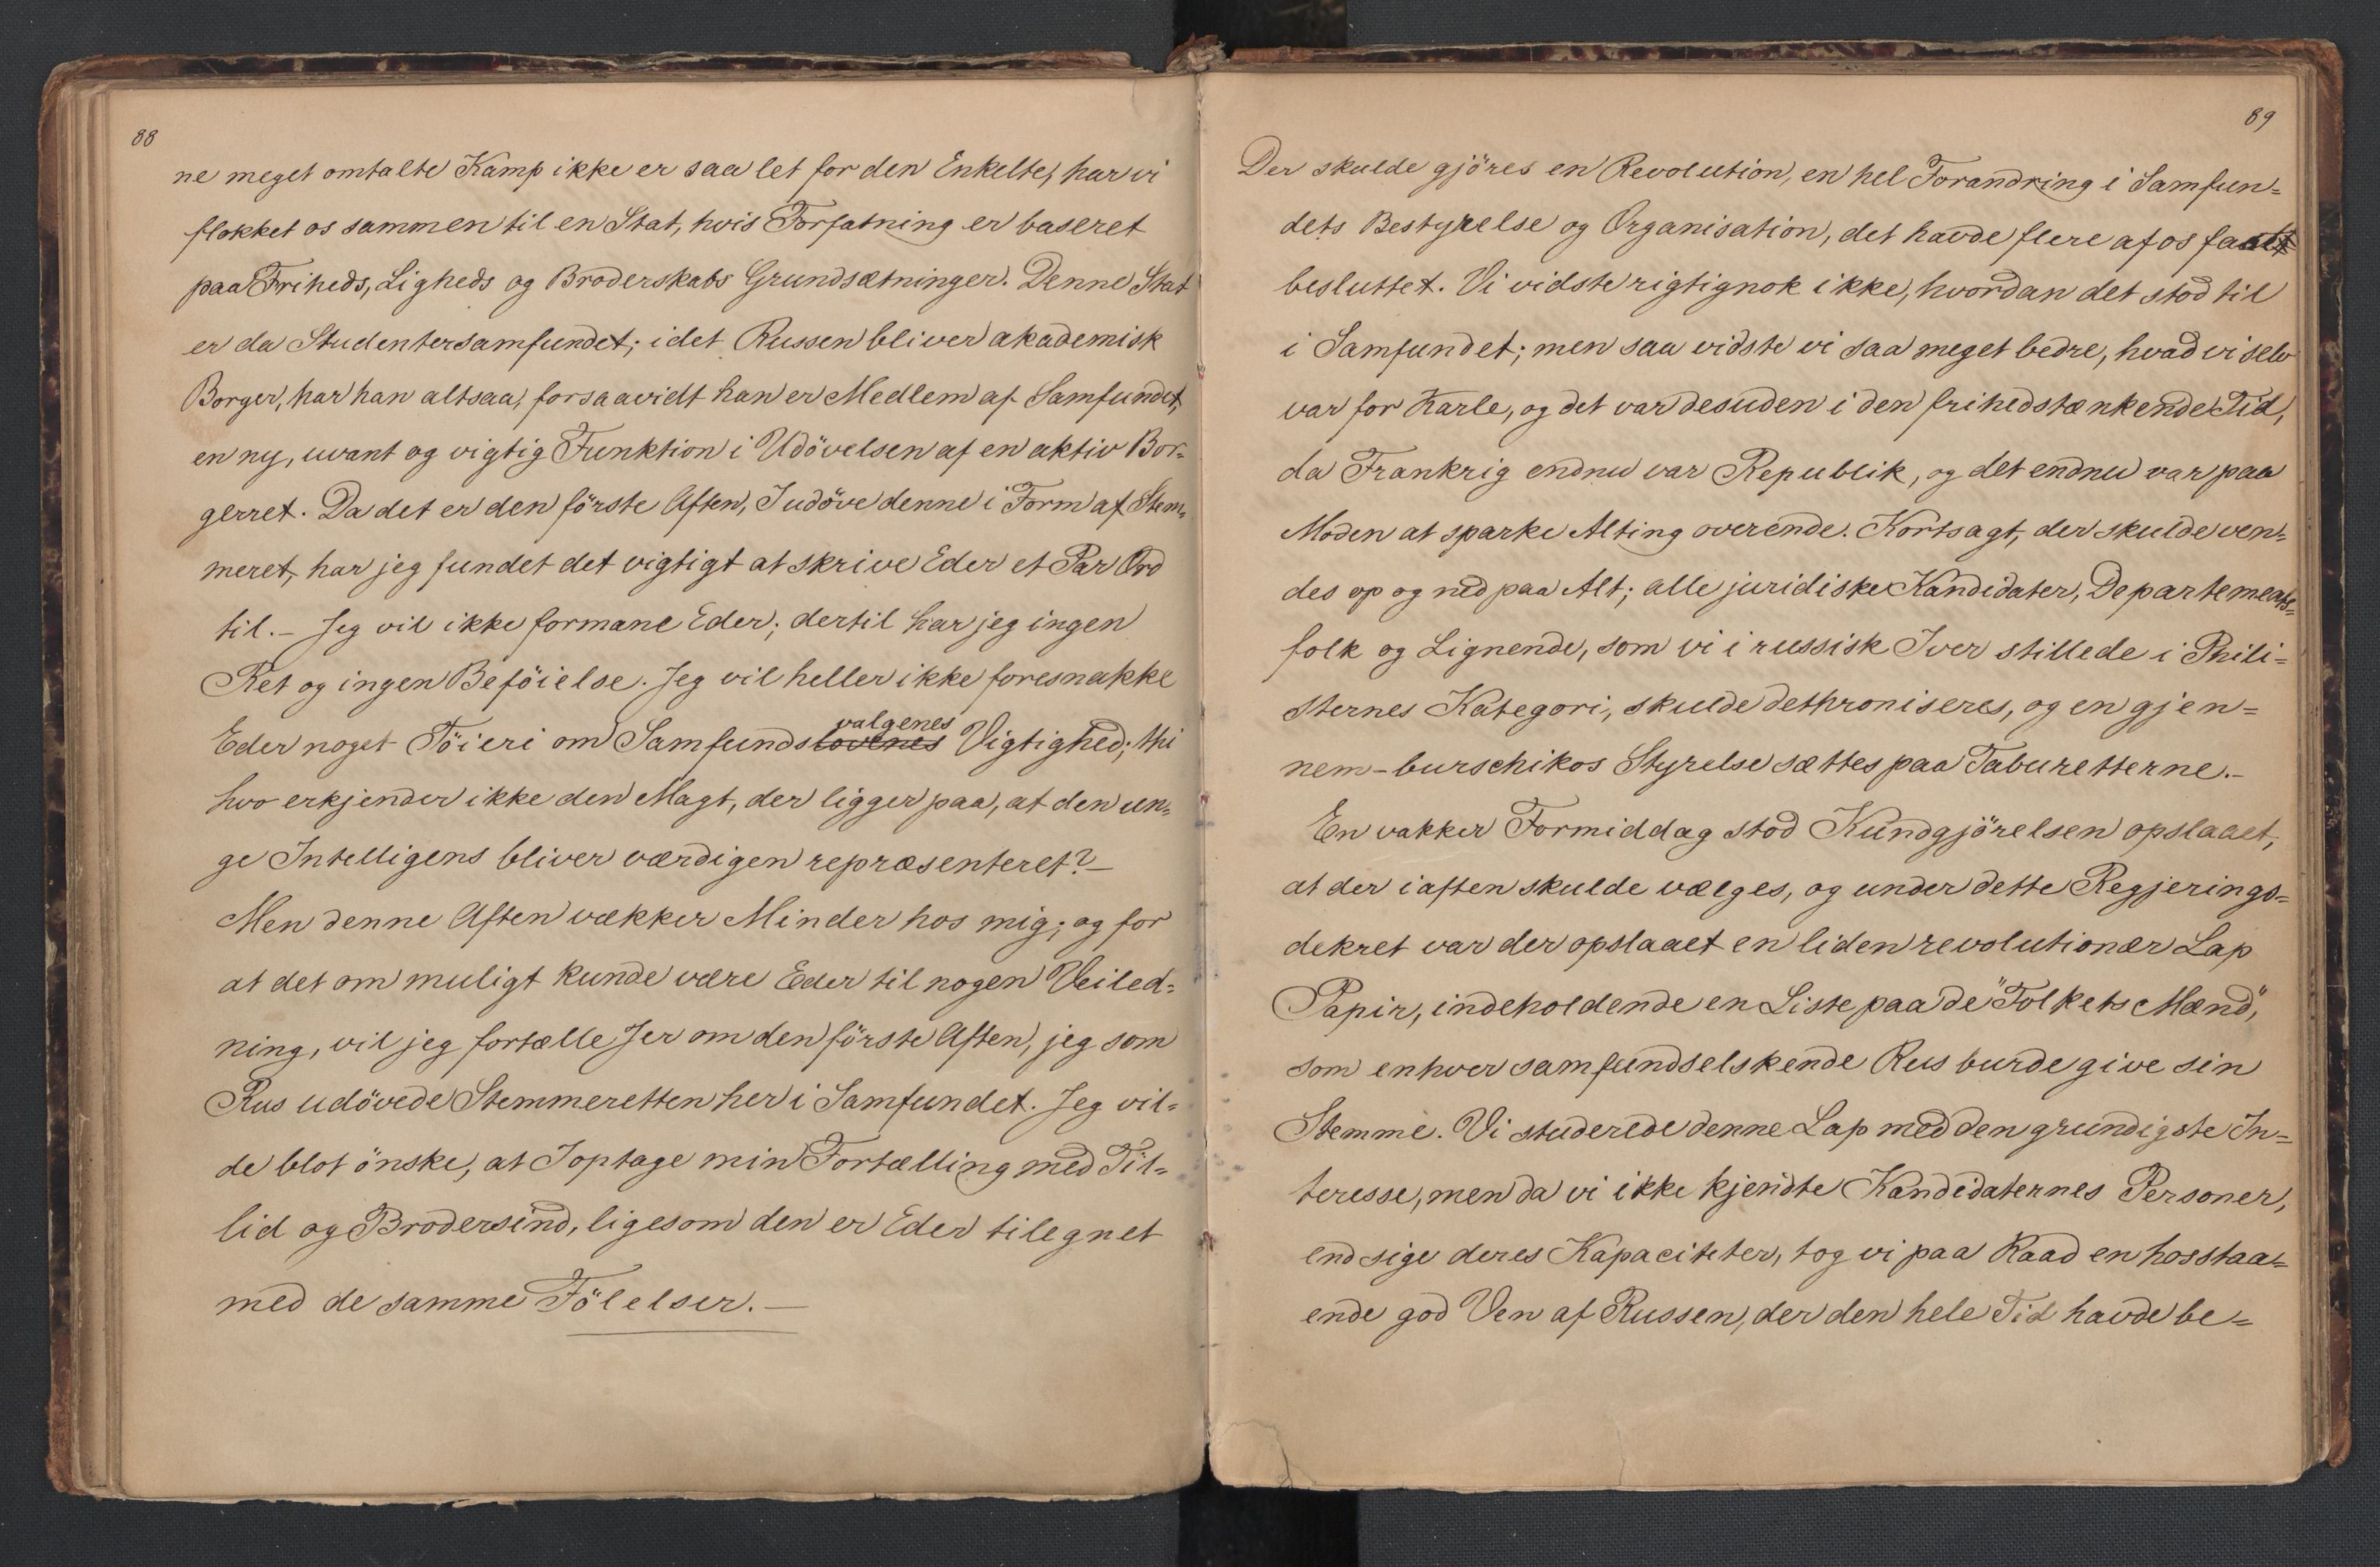 88
ne meget omtalte Kamp ikke er saa let for den Enkelte, har vi
flokket os sammen til en Stat, hvis Forfatning er baseret
paa Friheds, Ligheds og Broderskabs Grundsætninger. Denne Stat
er da Studentersamfundet; idet Russen bliver akademisk
Borger, har han altsaa, forsaavidt han er Medlem af Samfundet,
en ny, uvant og vigtig Funktion i Udövelsen af en aktiv Bor=
gerret. Da det er den förste Aften, I udöve denne i Form af Stem=
meret, har jeg fundet det vigtigt at skrive Eder et Par Ord
til. – Jeg vil ikke formane Eder; dertil har jeg ingen
Ret og ingen Beföielse. Jeg vil heller ikke foresnakke
valgenes
Eder noget Töieri om Samfundslovenes Vigtighed; thi
hvo erkjender ikke den Magt, der ligger paa, at den un=
ge Intelligens bliver værdigen repræsenteret? –
Men denne Aften vækker Minder hos mig; og for
at det om muligt kunde være Eder til nogen Veiled=
ning, vil jeg fortælle Jer om den förste Aften, jeg som
Rus udövede Stemmeretten her i Samfundet. Jeg vil=
de blot önske, at I optage min Fortælling med Til=
lid og Brodersind, ligesom den er Eder tilegnet
med de samme Fölelser. –
89
Der skulde gjöres en Revolution, en hel Forandring i Samfun=
dets Bestyrelse og Organisation, det havde flere af os
besluttet. Vi vidste rigtignok ikke, hvordan det stod til
i Samfundet; men saa vidste vi saa meget bedre, hvad vi selv
var for Karle, og det var desuden i den frihedstænkende Tid,
da Frankrig endnu var Republik, og det endnu var paa
Moden at sparke Alting overende. Kortsagt, der skulde ven=
des op og ned paa Alt; alle juridiske Kandidater, Departements=
folk og Lignende, som vi i russisk Iver stillede i Phili=
sternes Kategori, skulde dethroniseres, og en gjen=
nem-burschikos Styrelse sættes paa Taburetterne. –
En vakker Formiddag stod Kundgjörelsen opslaaet,
at der iaften skulde vælges, og under dette Regjerings=
dekret var der opslaaet en liden revolutionær Lap
Papir, indeholdende en Liste paa de "Folkets Mænd",
som enhver samfundselskende Rus burde give sin
Stemme. Vi studerede denne Lap med den grundigste In=
teresse, men da vi ikke kjendte Kandidaternes Personer,
endsige deres Kapaciteter, tog vi paa Raad en hosstaa=
ende god Ven af Russen, der den hele Tid havde be=